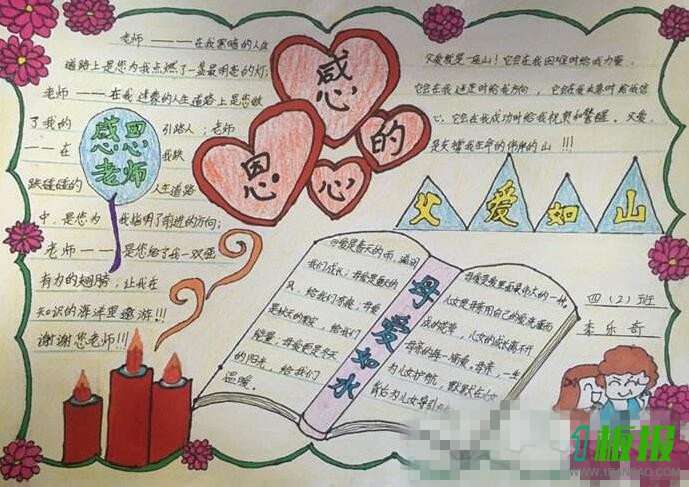 感恩的心
老师———在我黑暗的人生
道路上是您为我点燃了一盏最明亮的灯;
老师——在我迷茫的人生道路上是您做
了我的
引路人;老师
——在
我跌
跌碰碰的
人生道路
中,是您为
我指明了前进的方向;
老师——是您给了我一双强
有力的翅膀;让我在
知识的海洋里遨游!!!
谢谢您老师!!!
感恩
老师
父爱就是一座山!它会在我困难时给我力量,
它会在我迷茫时给我方向,它会在我失落时给我信
心,它会在我成功时给我祝贺和警醒。父爱,
是支撑我生命的伟岸的山!!!
父爱如山
母爱是春天的雨,滋润
我们成长;母爱是夏天的
风,给我们凉爽,母爱
是秋天的果实,给我们
能量;母爱更是冬天
的阳光,给我们
温暖。
母爱如水
母爱是爱里面最伟大的一种,
儿女是母亲用自己的爱浇灌而
成的花蕾,儿女的成长离不开
母亲的每一滴爱。母亲,一生
为儿女护航,默默在儿女
背后为儿女导引方
四(2)班
李乐奇
1板报
WWW.1BANBAO.COM